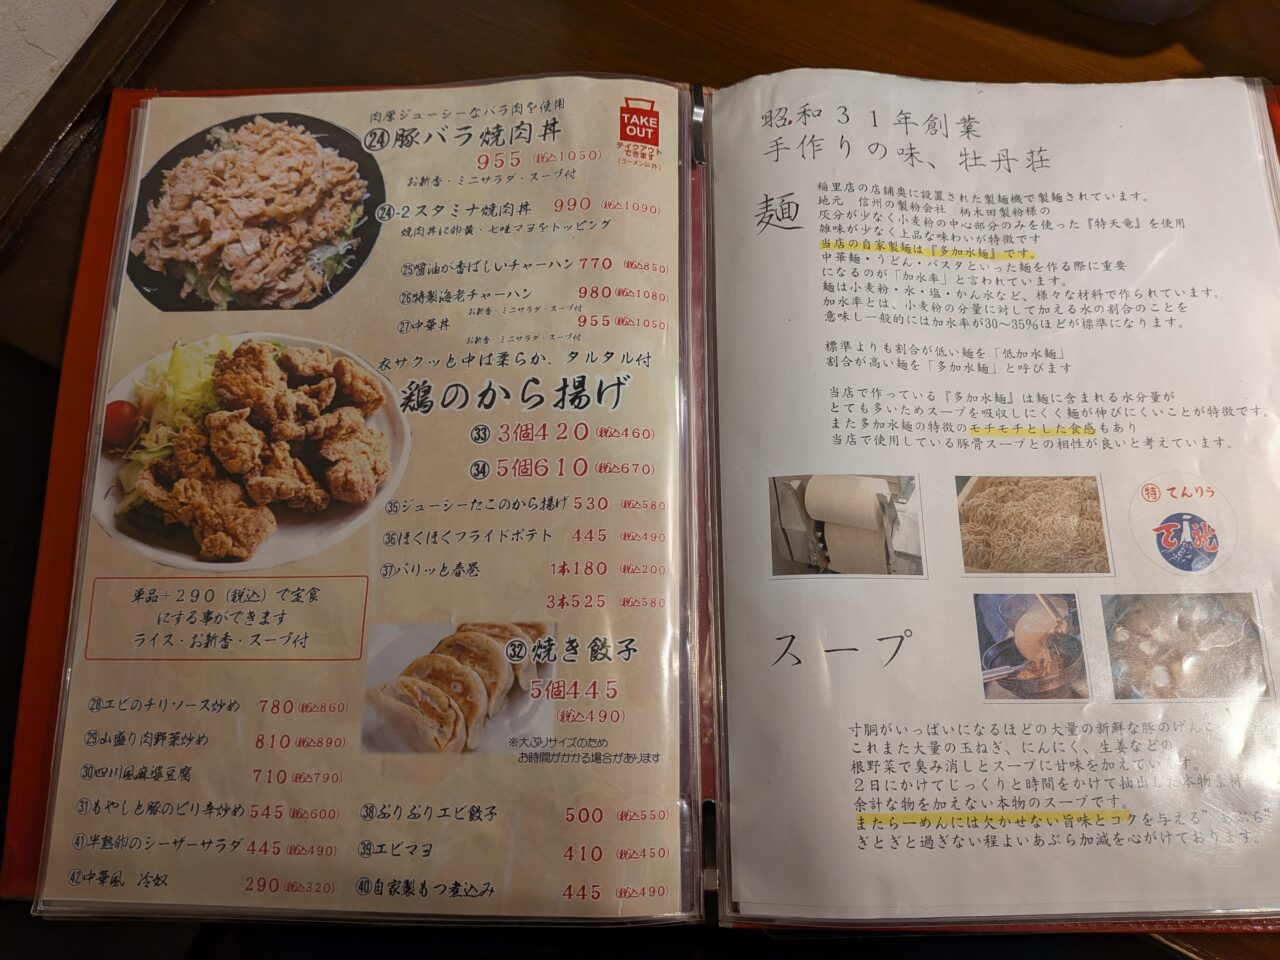 肉厚ジューシーなバラ肉を使用
㉔豚バラ焼肉丼
955(税込1050)
お新香・ミニサラダ・スープ付
TAKE OUT
テイクアウト
できます
(ラーメン以外)
㉔-2スタミナ焼肉丼 990(税込1090)
焼肉丼に卵黄・七味マヨをトッピング
㉕醤油が香ばしいチャーハン 770(税込850)
㉖特製海老チャーハン 980(税込1080)
お新香・ミニサラダ・スープ付
㉗中華丼 955(税込1050)
お新香・ミニサラダ・スープ付
衣サクッと中は柔らか、タルタル付
鶏のから揚げ
㉝3個420(税込460)
㉞5個610(税込670)
㉟ジューシーたこのから揚げ 530(税込580)
㊱ほくほくフライドポテト 445(税込490)
㊲パリッと春巻 1本180(税込200)
3本525(税込580)
単品+290(税込)で定食
にする事ができます
ライス・お新香・スープ付
㉜焼き餃子
5個445
(税込490)
※大ぶりサイズのため
お時間がかかる場合があります
㉘エビのチリソース炒め 780(税込860)
㉙山盛り肉野菜炒め 810(税込890)
㉚四川風麻婆豆腐 710(税込790)
㉛もやしと豚のピリ辛炒め 545(税込600)
㊶半熟卵のシーザーサラダ 445(税込490)
㊷中華風 冷奴 290(税込320)
㊳ぷりぷりエビ餃子 500(税込550)
㊴エビマヨ 410(税込450)
㊵自家製もつ煮込み 445(税込490)
昭和31年創業
手作りの味、牡丹荘
麺
稲里店の店舗奥に設置された製麺機で製麺されています。
地元 信州の製粉会社 柄木田製粉様の
灰分が少なく小麦粉の中心部分のみを使った『特天竜』を使用
雑味が少なく上品な味わいが特徴です
当店の自家製麺は『多加水麺』です。
中華麺・うどん・パスタといった麺を作る際に重要
になるのが「加水率」と言われています。
麺は小麦粉・水・塩・かん水など、様々な材料で作られています。
加水率とは、小麦粉の分量に対して加える水の割合のことを
意味し一般的には加水率が30〜35%ほどが標準になります。
標準よりも割合が低い麺を「低加水麺」
割合が高い麺を「多加水麺」と呼びます
当店で作っている『多加水麺』は麺に含まれる水分量が
とても多いためスープを吸収しにくく麺が伸びにくいことが特徴です。
また多加水麺の特徴のモチモチとした食感もあり
当店で使用している豚骨スープとの相性が良いと考えています。
特 てんりう
スープ
寸胴がいっぱいになるほどの大量の新鮮な豚のげんこ
これまた大量の玉ねぎ、にんにく、生姜などの
根野菜で臭み消しとスープに甘味を加えています。
2日にかけてじっくりと時間をかけて抽出した本物
余計な物を加えない本物のスープです。
またらーめんには欠かせない旨味とコクを与える
ぎとぎと過ぎない程よいあぶら加減を心がけております。